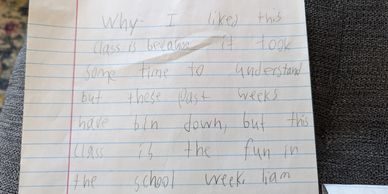 Why I liked this
class is because it took
some time to understand
but these past weeks
have bin down, but this
class is the fun in
the school week. I am